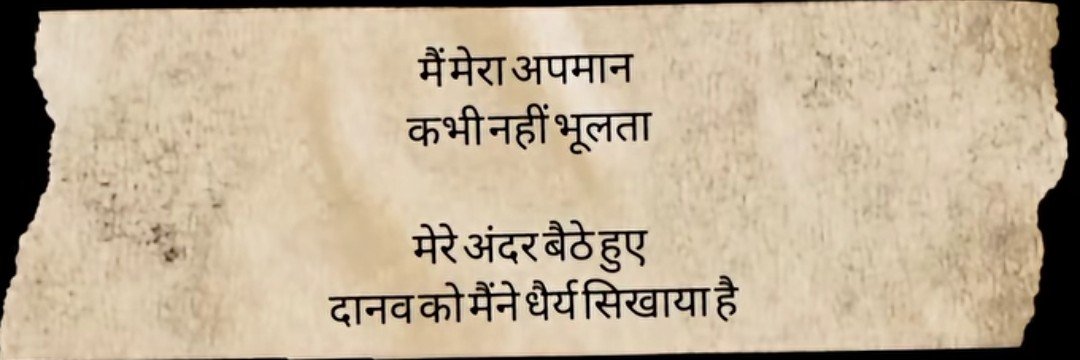 मैं मेरा अपमान
कभी नहीं भूलता
मेरे अंदर बैठे हुए
दानव को मैंने धैर्य सिखाया है